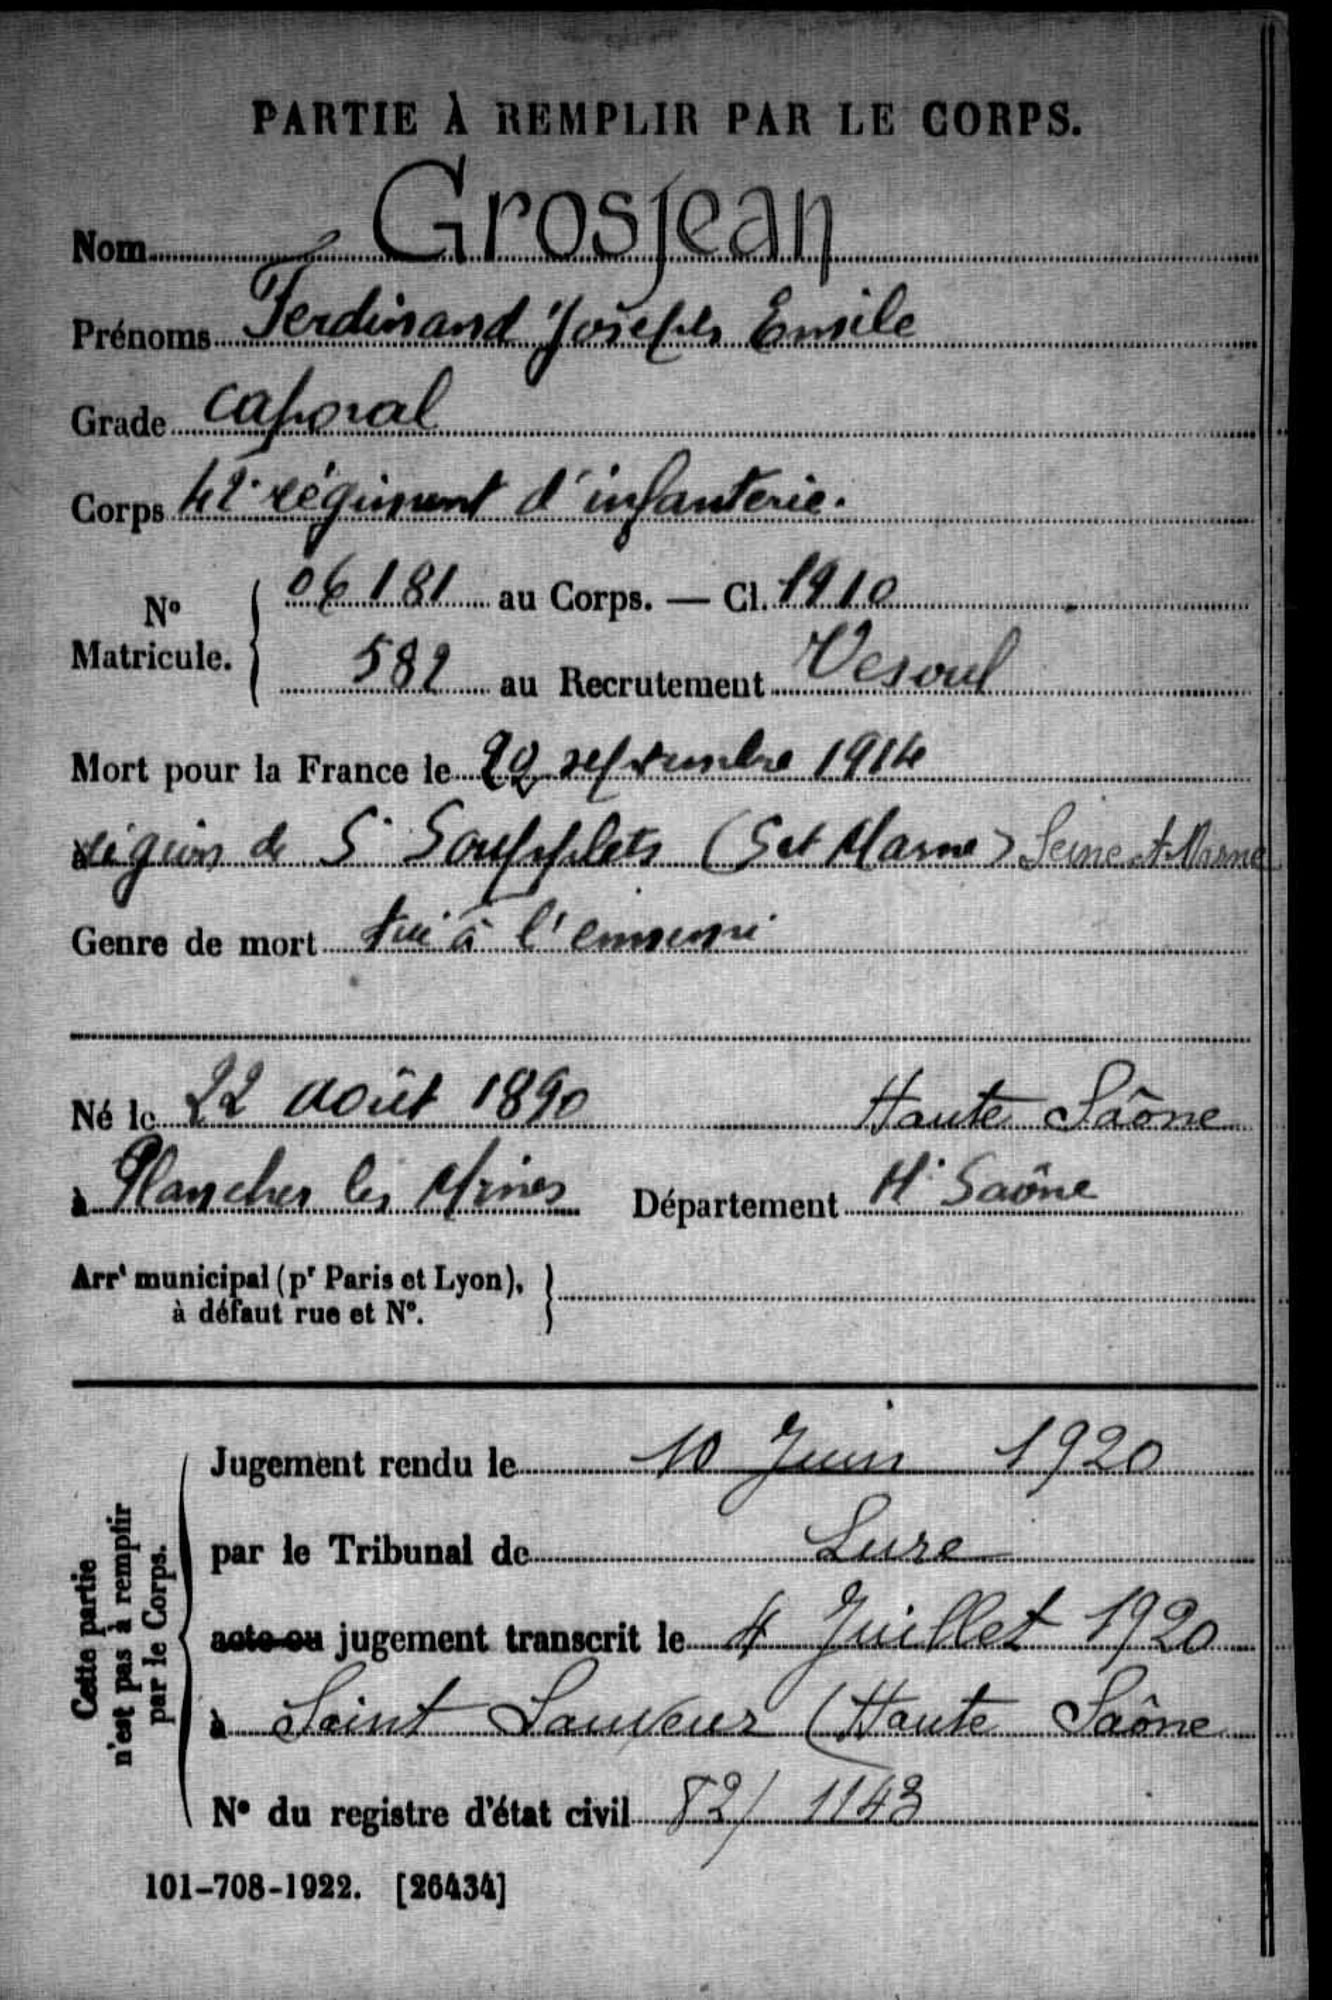 PARTIE À REMPLIR PAR LE CORPS.
Nom Grosjean
Prénoms Ferdinand Joseph Emile
Grade caporal
Corps 42e régiment d'infanterie.
N° Matricule. { 06181 au Corps. — Cl. 1910
582 au Recrutement Vesoul
Mort pour la France le septembre 1914
à région de St Soupplets (S et Marne) Seine et Marne
Genre de mort tué à l'ennemi
Né le 22 août 1890 Haute Saône
à Plancher les Mines Département Hte Saône
Arrt municipal (pr Paris et Lyon), }
à défaut rue et N°.
Cette partie
n'est pas à remplir
par le Corps.
Jugement rendu le 10 Juin 1920
par le Tribunal de Lure
acte ou jugement transcrit le 4 Juillet 1920
à Saint Sauveur (Haute Saône
N° du registre d'état civil 82/1143
101-708-1922. [26434]